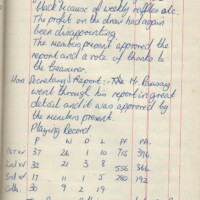 back because of weekly raffles etc.
The profit on the draw had again
been disappointing
The members present approved the
report and a vote of thanks to
the treasurer.
Hon Secretary's Report:- The H.
went through his report in great
detail and it was approved by
the members present.
Playing Record
P W D L PF PA.
1st XV 37 26 1 10 715 396
2nd XV 32 21 3 8 556 366
3rd XV 17 11 1 5 280 192
Colts 30 9 2 19